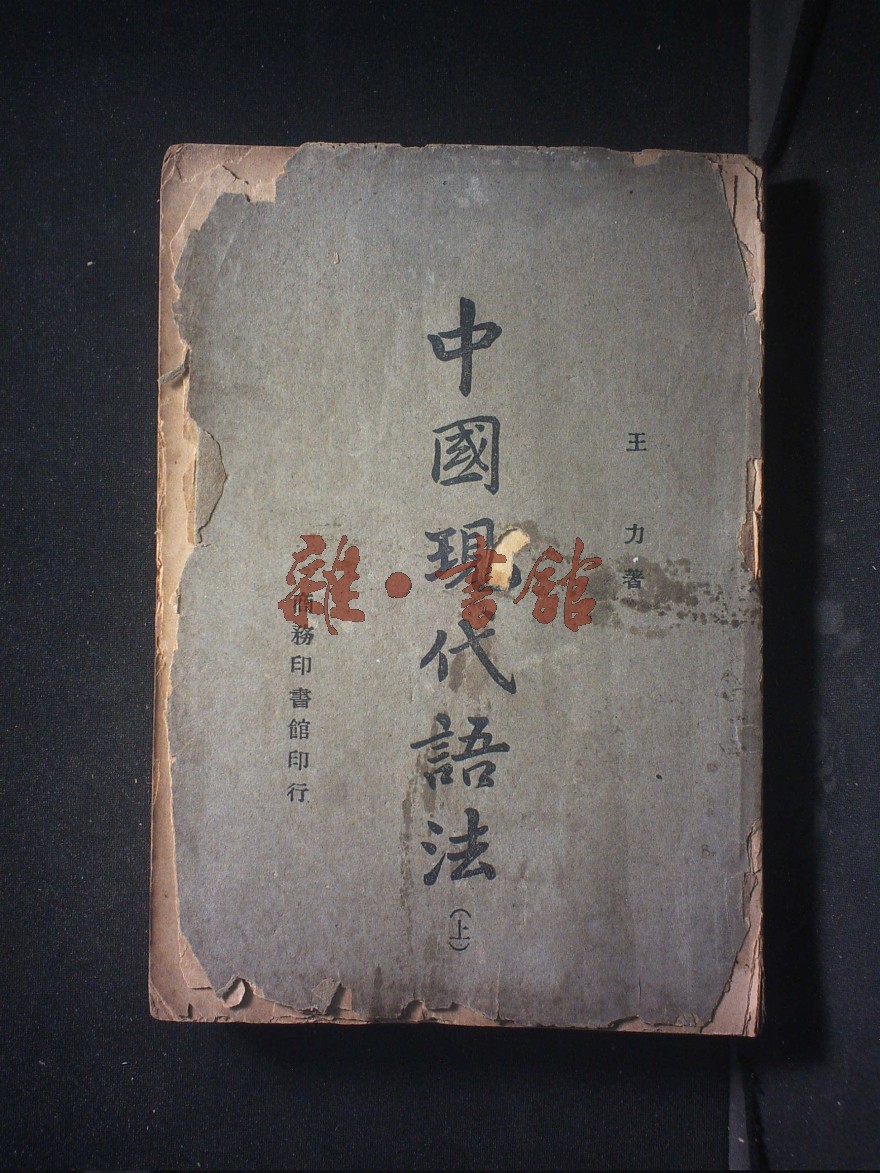 王力著
中國現代語法
（上）
商務印書館印行
雜·書館